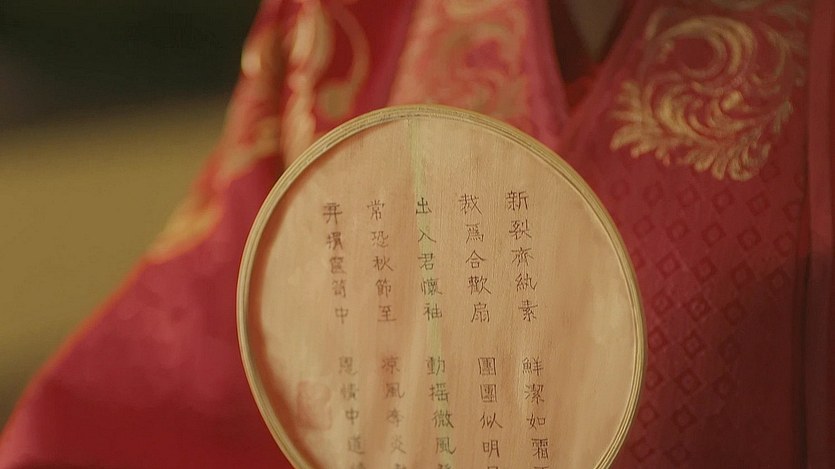 新裂齊紈素 鮮潔如霜
裁爲合歡扇 團團似明
出入君懷袖 動搖微風
常恐秋節至 涼風奪炎
弃捐篋笥中 恩情中道